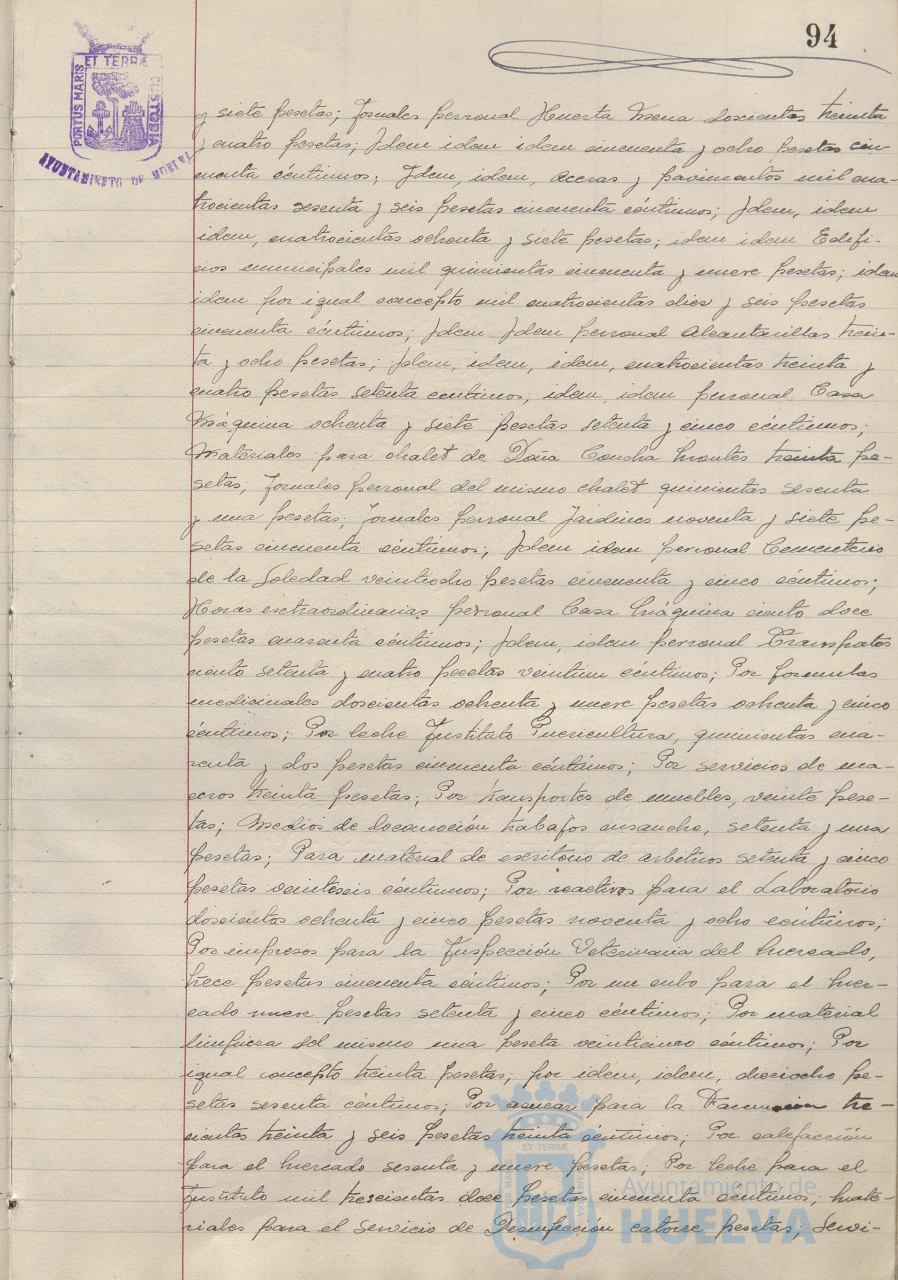 94
ET TERRÆ
PORTUS MARIS
CUSTODIA
AYUNTAMIENTO DE HUELVA
y siete pesetas; Jornales personal Huerta Mena doscientas treinta
y cuatro pesetas; Idem idem idem cincuenta y ocho pesetas cin-
cuenta céntimos; Idem, idem, aceras y pavimentos mil cua-
trocientas sesenta y seis pesetas cincuenta céntimos; Idem, idem
idem, cuatrocientas ochenta y siete pesetas; idem idem Edifi-
cios municipales mil quinientas cincuenta y nueve pesetas; idem
idem por igual concepto mil cuatrocientas diez y seis pesetas
cincuenta céntimos; Idem Idem personal Alcantarillas trein-
ta y ocho pesetas; Idem, idem, idem, cuatrocientas treinta y
cuatro pesetas setenta centimos; idem, idem personal Casa
Máquina ochenta y siete pesetas setenta y cinco céntimos;
Materiales para chalet de Doña Concha Montes treinta pe-
setas, Jornales personal del mismo chalet quinientas sesenta
y una pesetas; Jornales personal Jardines noventa y siete pe-
setas cincuenta céntimos; Idem idem personal Cementerio
de la Soledad veintiocho pesetas cincuenta y cinco céntimos;
Horas extraordinarias personal Casa Máquina ciento doce
pesetas cuarenta céntimos; Idem, idem personal Transportes
ciento setenta y cuatro pesetas veintiun céntimos; Por formulas
medicinales doscientas ochenta y nueve pesetas ochenta y cinco
céntimos; Por leche Instituto Puericultura, quinientas cua-
renta y dos pesetas cincuenta céntimos; Por servicios de ma-
ceros treinta pesetas; Por transportes de muebles, veinte pese-
tas; Medios de locomoción trabajos ensanche, setenta y una
pesetas; Para material de escritorio de arbitrios setenta y cinco
pesetas veintiseis céntimos; Por reactivos para el Laboratorio
doscientos ochenta y cinco pesetas noventa y ocho céntimos;
Por impresos para la Inspección Veterinaria del Mercado,
trece pesetas cincuenta céntimos; Por un cubo para el Mer-
cado nueve pesetas setenta y cinco céntimos; Por material
limpieza del mismo una peseta veinticinco céntimos; Por
igual concepto treinta pesetas; por idem, idem, dieciocho pe-
setas sesenta céntimos; Por azucar para la tre-
cientas treinta y seis pesetas treinta céntimos; Por calefacción
para el Mercado sesenta y nueve pesetas; Por leche para el
Instituto mil trescientas doce pesetas cincuenta centimos; Mate-
riales para el servicio de Desinfección catorce pesetas; Servi-
ET TERRÆ
Ayuntamiento de
HUELVA